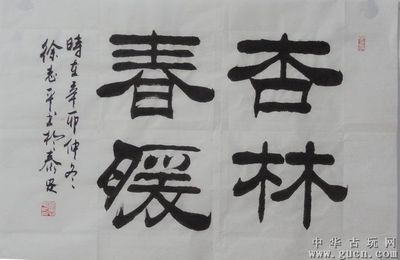 杏林
春暖
時在辛卯仲冬
徐志平书於泰安
中华古玩网
www.gucn.com